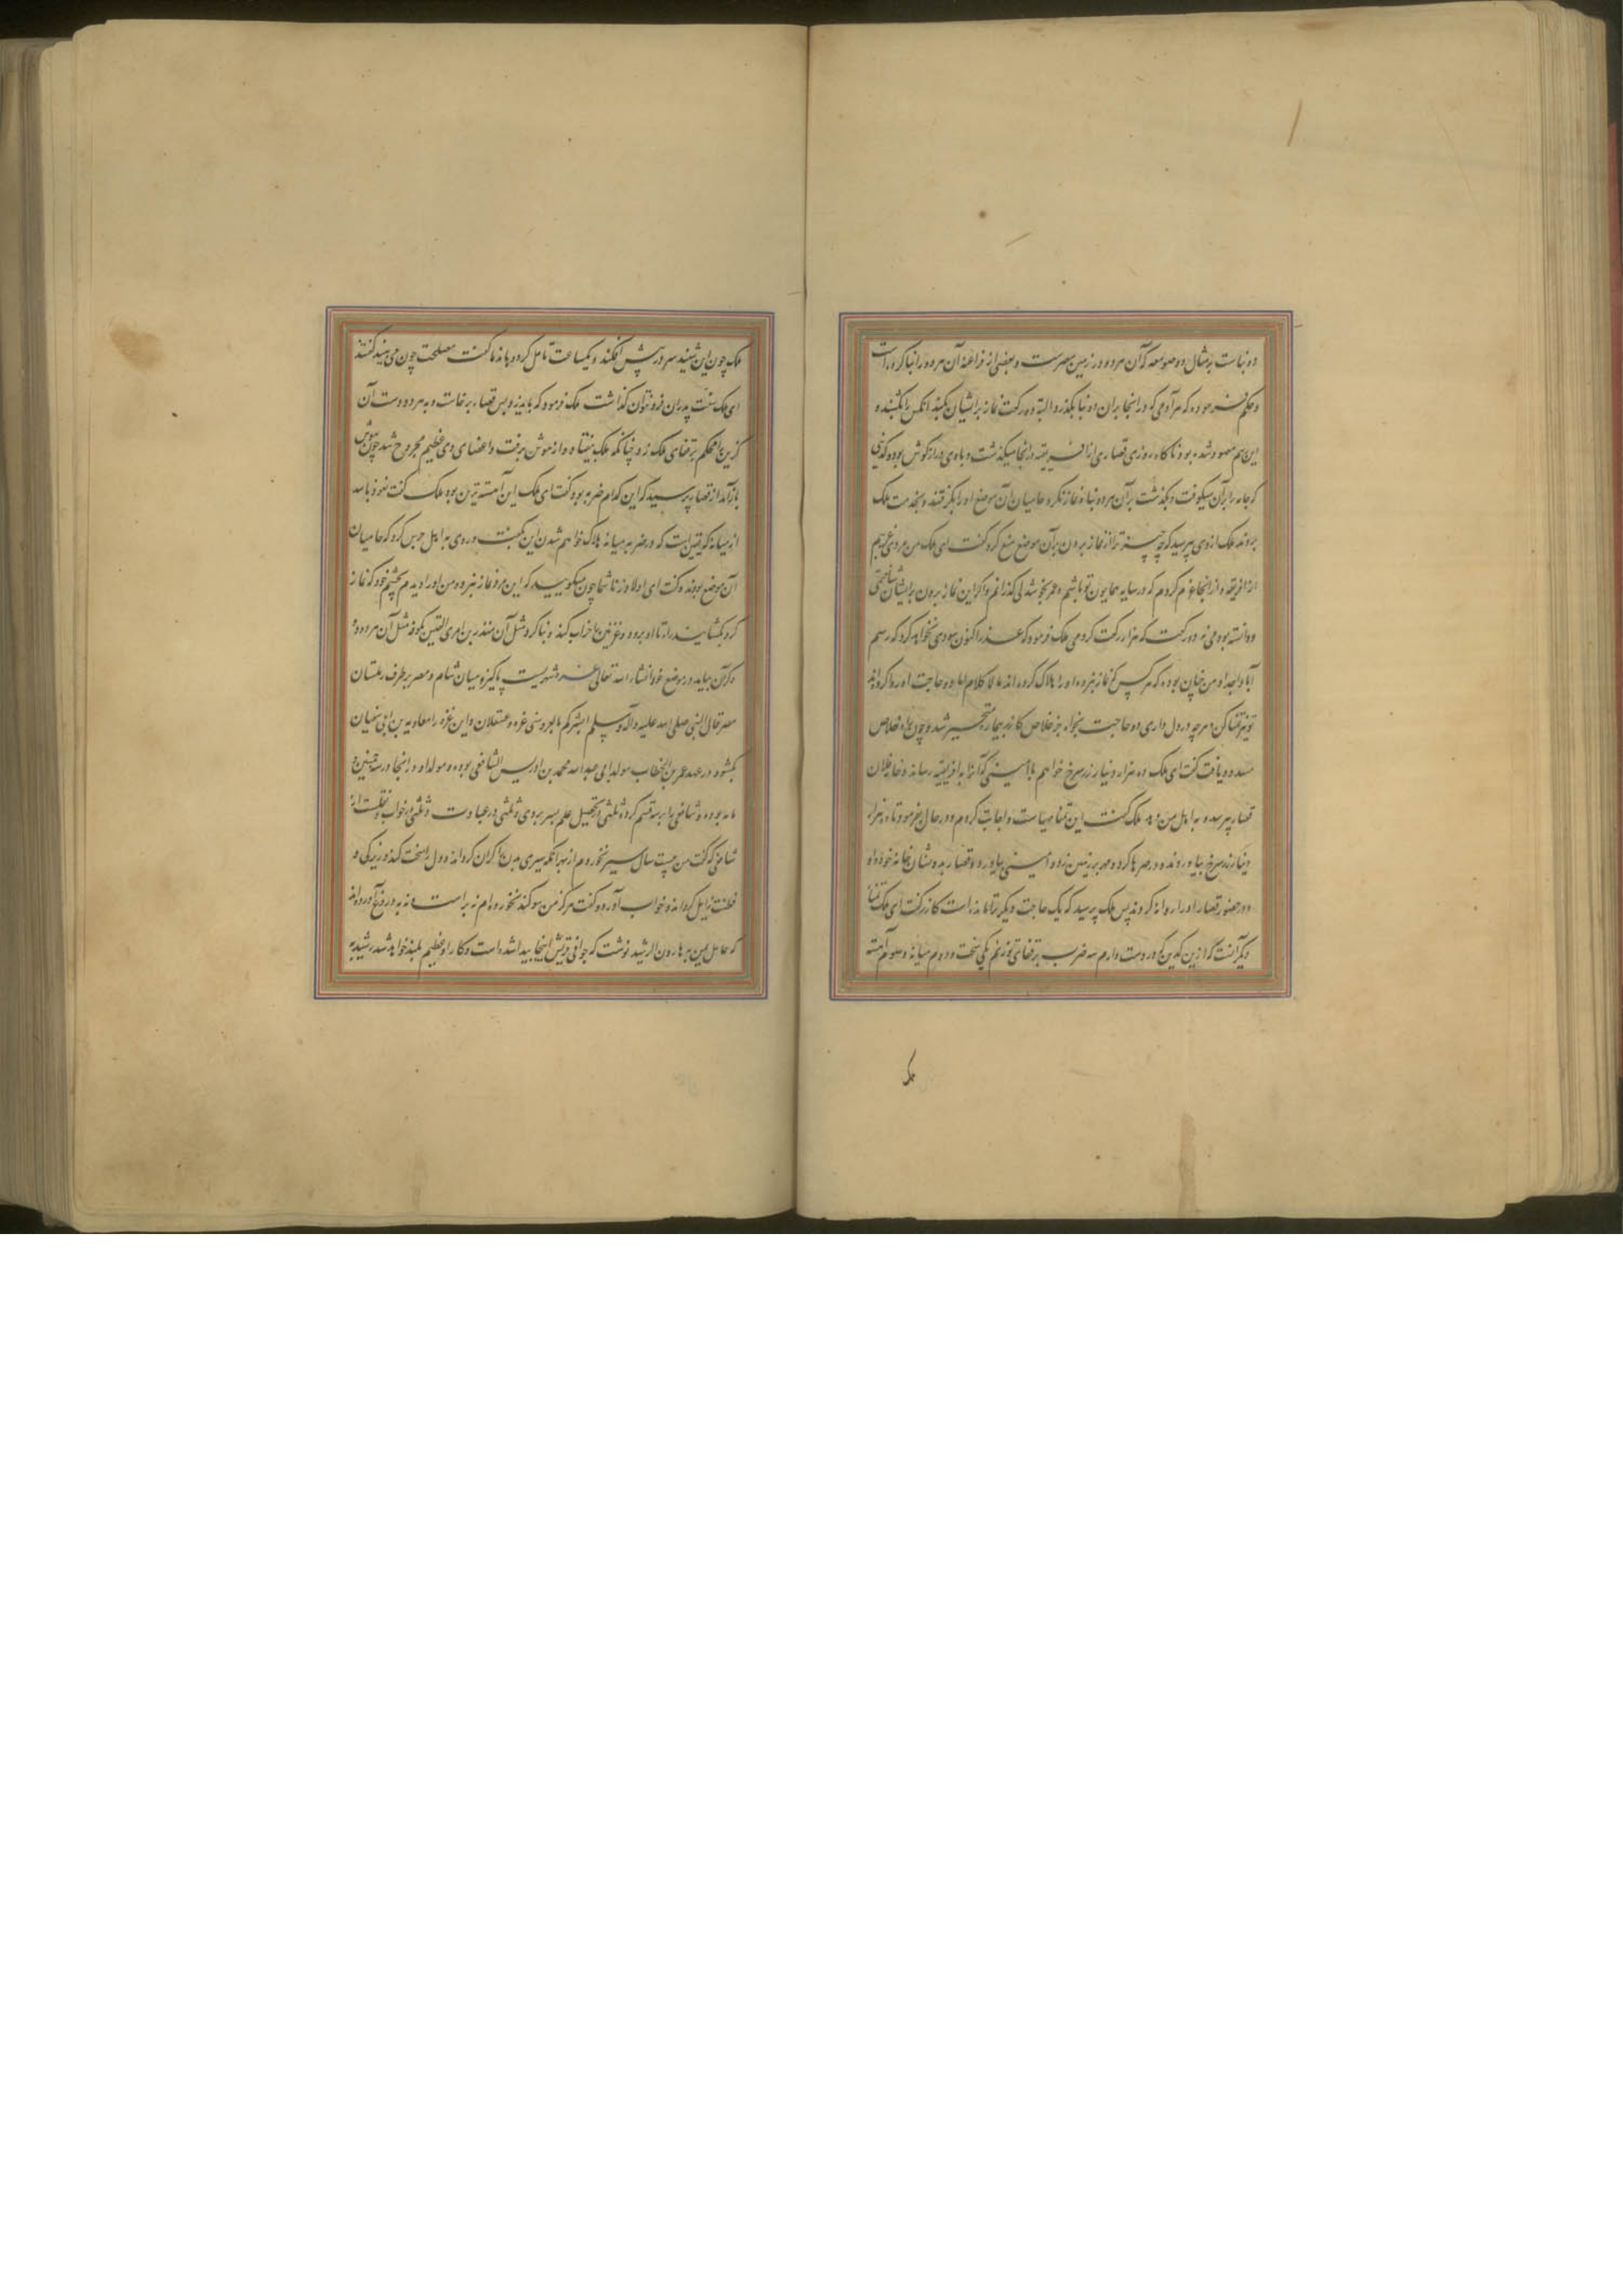 دو بناست بر مثال دو صومعه که آن هر دو در زمین مصرست و بعضی از فراعنه آن هر دو را بنا کرده است
و حکم فرموده که هر آدمی که در آنجا بر آن دو بنا بگذرد البته دو رکعت نماز بر ایشان بکند آنکس را بکشند و
این هم معهود شده بود ناگاه روزی قصاری از افریقیه در آنجا میگذشت و با وی دراز گوش بوده و کدینی
که جامه را بر آن میکوفت و بگذشت بر آن هر دو بنا و نماز نکرد حامیان آن موضع او را بگرفتند و بخدمت ملک
بردند ملک از وی پرسید که چه چیز ترا از نماز بردن بر آن موضع منع کرد گفت ای ملک من مردی غریبم
از افریقیه و از آنجا عزم کردم که در سایه همایون تو باشم و عمر بخوشدلی گذرانم و اگر این نماز بردن بر ایشان
دانسته بودمی نه دو رکعت که هزار رکعت کردمی ملک فرمود که عذر اکنون سودی نخواهد کرد که رسم
آبا و اجداد من چنان بوده که هر کس که نماز نبرده او را هلاک کرده اند لا کلام اما دو حاجت او روا کرده اند
تو نیز تمنا کن و هر چه در دل داری دو حاجت بخواه جز خلاص کازر بیچاره متحیر شد و چون راه خلاص
مسدود یافت گفت ای ملک ده هزار دینار زر سرخ خواهم با امینی که آنرا به افریقیه رساند و خانه فلان
قصار پرسد و به اهل من دهد ملک گفت این تمنا مهیاست و اجابت کردم و در حال بفرمود تا ده هزار
دینار زر سرخ بیاوردند و در صرها کرد و مهر بر زنین زد و امینی بیاورد و قصار بدو نشان خانه خود داد
و در حضور قصار او را روانه کردند پس ملک پرسید که یک حاجت دیگر ترا مانده است کازر گفت ای ملک تمنا
دیگر آنست که ازین کدین که در دست دارم سه ضرب بر قفای تو زنم یکی سخت و دوم میانه و سوم آهسته
ملک
ملک چون این شنید سر در پیش افکند و یکساعت تأمل کرد و با ندما گفت مصلحت چون می بینید گفتند
ای ملک سنت پدران فرو نتوان گذاشت ملک فرمود که بیا بزن پس قصار برخاست و به هر دو دست آن
کدین را محکم بر قفای ملک زد چنانکه ملک بیفتاد و از هوش برفت و اعضای وی عظیم مجروح شد چون بهوش
باز آمد از قصار پرسید که این کدام ضربه بود گفت ای ملک این آهسته ترین بود ملک گفت نعوذ بالله
از میانه که یقین است که در ضربه میانه هلاک خواهم شدن این بگفت و روی به اهل حرس کرد که حامیان
آن موضع بودند و گفت ای اولاد زنا شما چون میگویید که این مرد نماز نبرد و من او را دیدم بچشم خود که نماز
کرد بگشایید را تا او برود و غرینین را خراب کنند و بنا کرد مثل آن منذر بن امری القیس بکوفه مثل آن هر دو و
ذکر آن بیاید در موضع خود انشاء الله تعالی غزه شهریست پاکیزه میان شام و مصر بر طرف رملستان
مصر قال النبی صلی الله علیه و آله و سلم ابشرکم بالعروسین غزه و عسقلان و این غزه را معاویه بن ابی سفیان
بگشود در عهد عمر بن الخطاب مولد ابی عبد الله محمد بن ادریس الشافعی بوده و مولد او در آنجا در سنه خمسین و
مایه بوده و شافعی را بر سه قسم کرده ثلثی در تحصیل علم بسر بردی و ثلثی در عبادت و ثلثی در خواب نقلست از
شافعی که گفت من بیست سال سیر نخوردم از بهر آنکه سیری بدن را گران گرداند و دل را سخت کند و زیرکی و
فطنت زایل گرداند و خواب آورد و گفت هرگز من سوگند نخورده ام نه براست و نه به دروغ آورده اند
که عامل یمن بر هارون الرشید نوشت که جوانی قریش اینجا پیدا شده است و کار او عظیم بلند خواهد شد رشید به